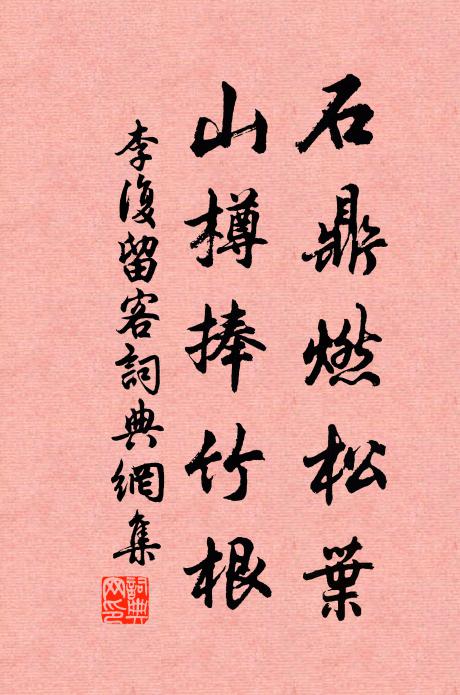 石鼎燃松葉
山樽捧竹根
李復留客詞典網集
詞典網印